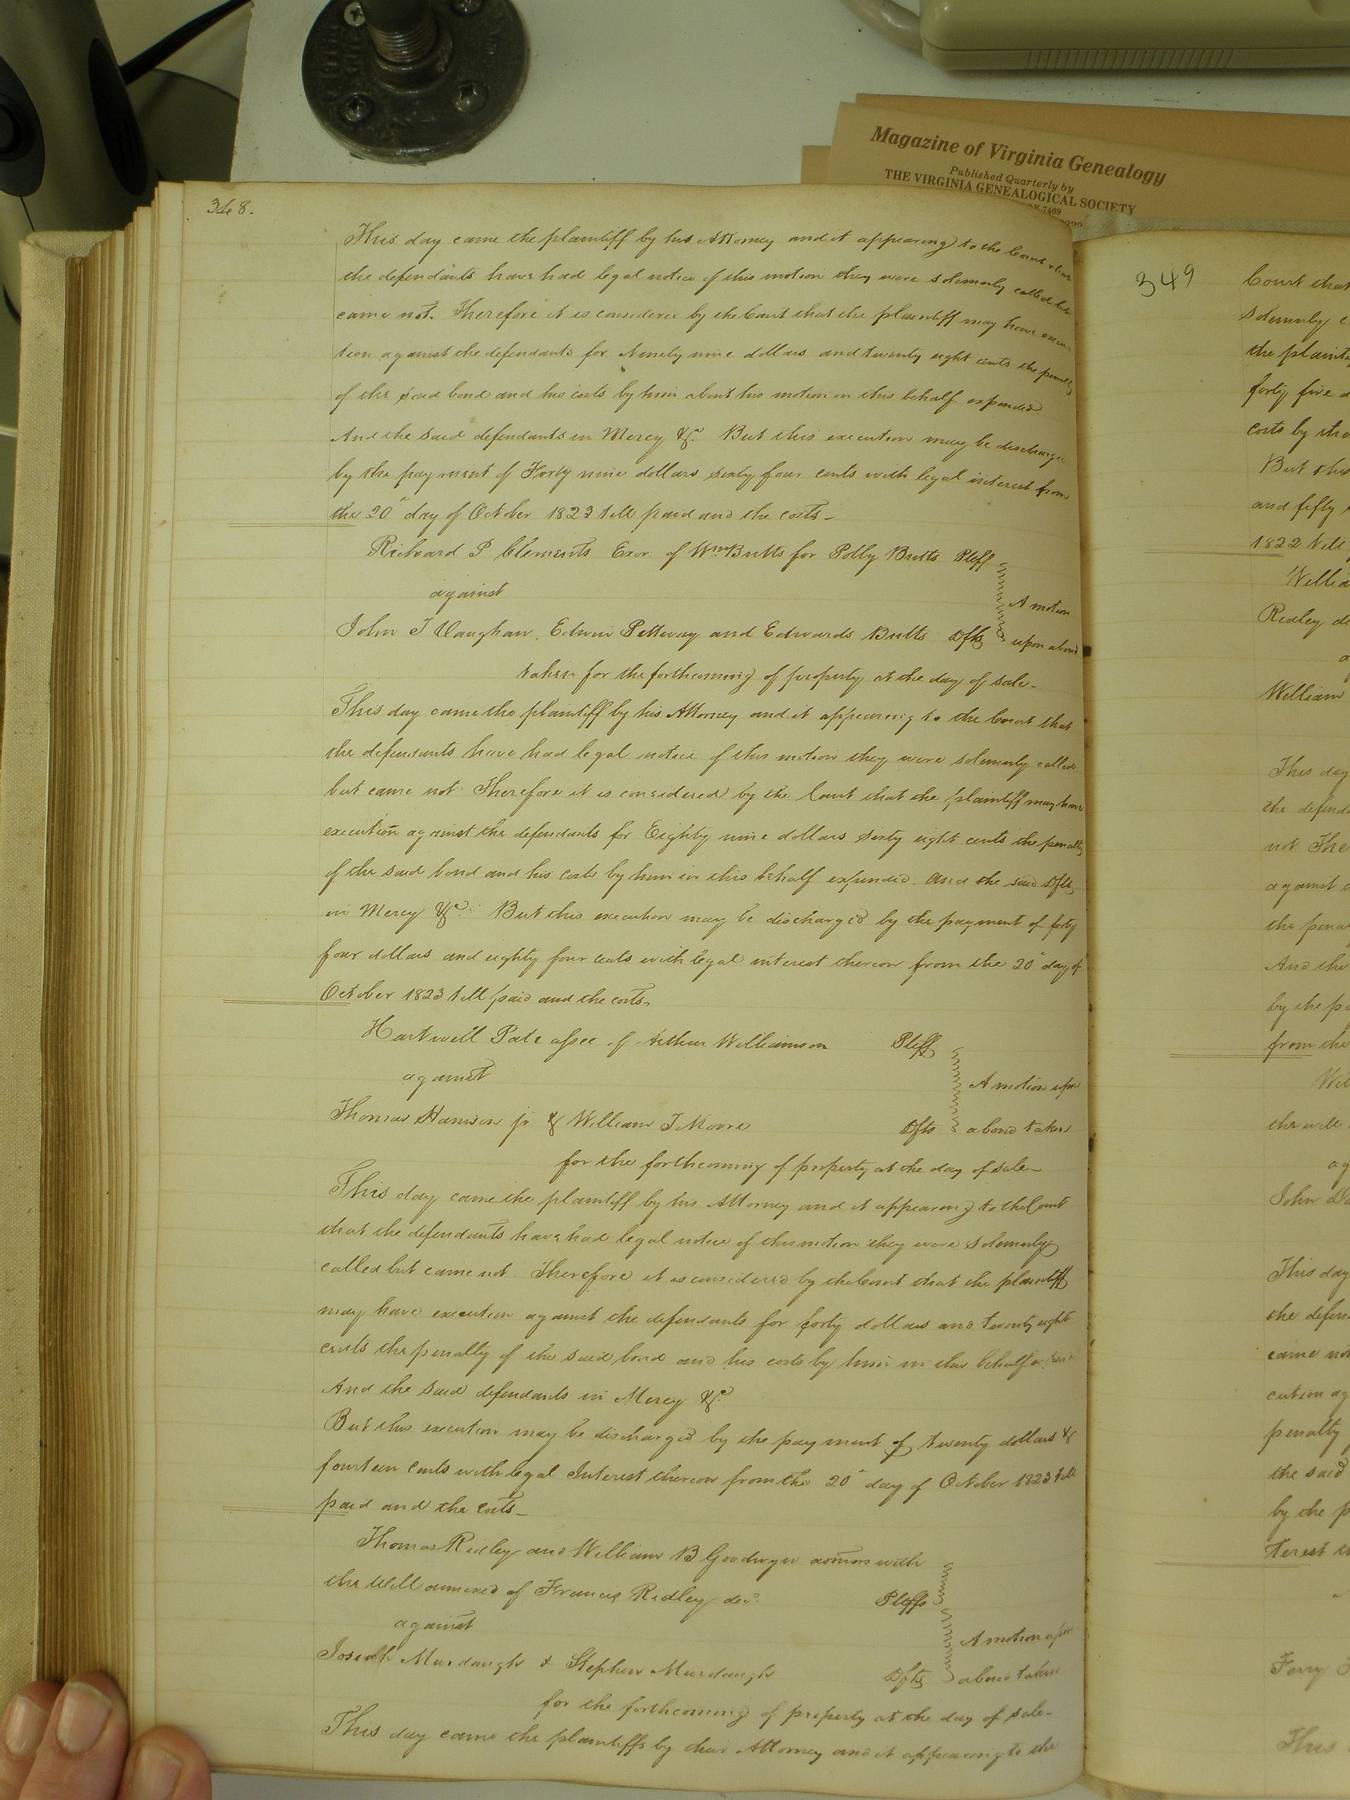 Magazine of Virginia Genealogy
Published Quarterly by
THE VIRGINIA GENEALOGICAL SOCIETY
7469
348.
This day came the plaintiff by his Attorney and it appearing to the Court that
the defendants have had legal notice of this motion they were solemnly called but
came not. Therefore it is considered by the Court that the plaintiff may have execu
tion against the defendants for Ninety nine dollars and twenty eight cents the penalty
of the said bond and his costs by him about his motion in this behalf expended
And the said defendants in Mercy &c. But this execution may be discharged
by the payment of Forty nine dollars sixty four cents with legal interest from
the 20 day of October 1823 till paid and the costs_
Richard P Clements Exor of Wm Butts for Polly Butts Pltff
against
A motion
John T Vaughan, Edwin Pettway and Edwards Butts Dfts
upon a bond
taken for the forthcoming of property at the day of sale_
This day came the plaintiff by his Attorney and it appearing to the Court that
the defendants have had legal notice of this motion they were solemnly called
but came not Therefore it is considered by the Court that the plaintiff may have
execution against the defendants for Eighty nine dollars sixty eight cents the penalty
of the said bond and his costs by him in this behalf expended and the said Dfts
in Mercy &c. But this execution may be discharged by the payment of forty
four dollars and eighty four cents with legal interest thereon from the 20 day of
October 1823 till paid and the costs_
Hartwell Pate assee of Arthur Williamson Pltff
against
A motion upon
Thomas Harrison jr & William T Moore Dfts
a bond taken
for the forthcoming of property at the day of sale_
This day came the plaintiff by his Attorney and it appearing to the Court
that the defendants have had legal notice of this motion they were solemnly
called but came not Therefore it is considered by the Court that the plaintiff
may have execution against the defendants for forty dollars and twenty eight
cents the penalty of the said bond and his costs by him in this behalf
And the said defendants in Mercy &c.
But this execution may be discharged by the payment of twenty dollars &
fourteen cents with legal Interest thereon from the 20 day of October 1823 till
paid and the costs_
Thomas Ridley and William B Goodwyn admors with
the Will annexed of Francis Ridley dec. Pltffs
against
A motion upon
Joseph Murdaugh & Stephen Murdaugh Dfts
a bond taken
for the forthcoming of property at the day of sale_
This day came the plaintiffs by their Attorney and it appearing to the
349
Court that
solemnly c
the plaint
forty five d
costs by the
But this
and fifty
1822 till
Willia
Ridley de
a
William
This day
the defend
not The
against
the pena
And the
by the pa
from the
Wil
the will
ag
John
This day
the defen
came not
cution ag
penalty
the said
by the p
terest
Ferry
This